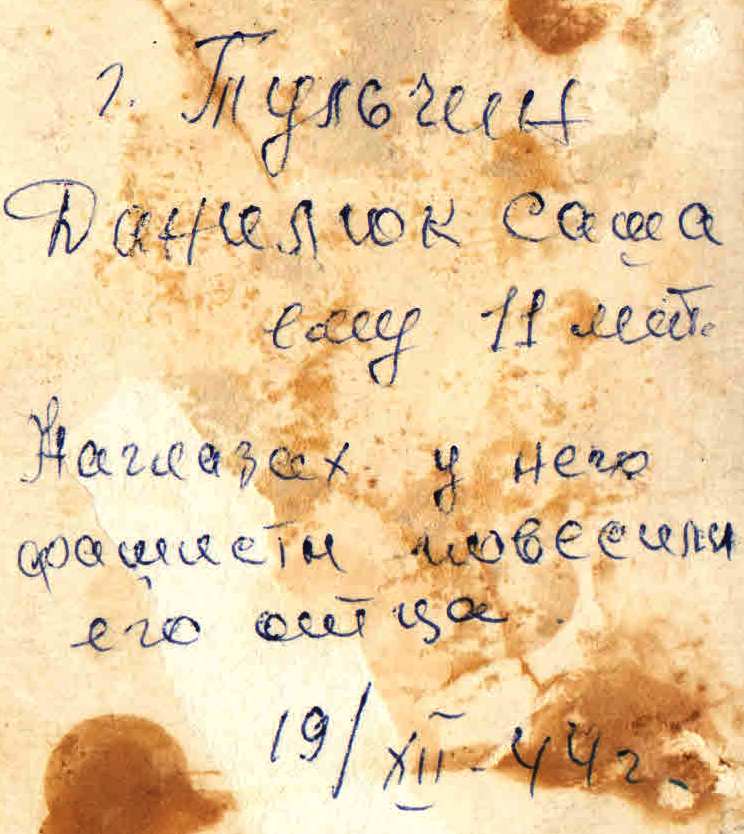 г. Тульчин
Данилюк Саша
ему 11 лет.
Наглазах у него
фашисты повесили
его отца.
19/XII-44г.